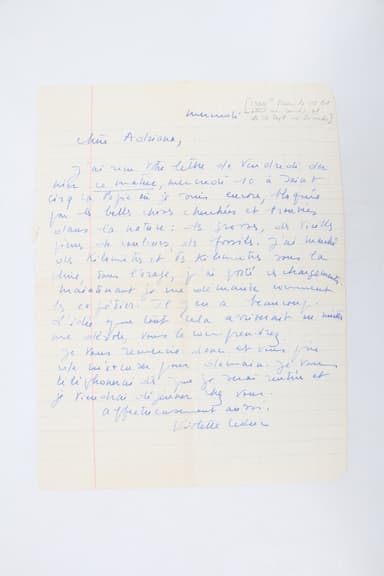 mercredi
Chère Adriana,
J'ai reçu votre lettre de vendredi der
nier ce matin, mercredi 10 à Saint
Cirq la Popie où je suis encore, bloquée
par les belles choses cherchées et trouvées
dans la nature : des grosses, des vieilles
pierres de couleurs de fossiles. J'ai marché
des kilomètres et des kilomètres sous la
pluie, sous l'orage, j'ai porté ces chargements
maintenant je me demande comment
les expédier. Il y en a beaucoup.
L'idée que tout cela arriverait en
me désole, vous le comprendrez.
Je vous remercie donc et vous prie
de m'excuser pour demain. Je vous
téléphonerai dès que je serai rentrée et
je viendrai déjeuner chez vous.
Affectueusement aussi.
Violette Leduc